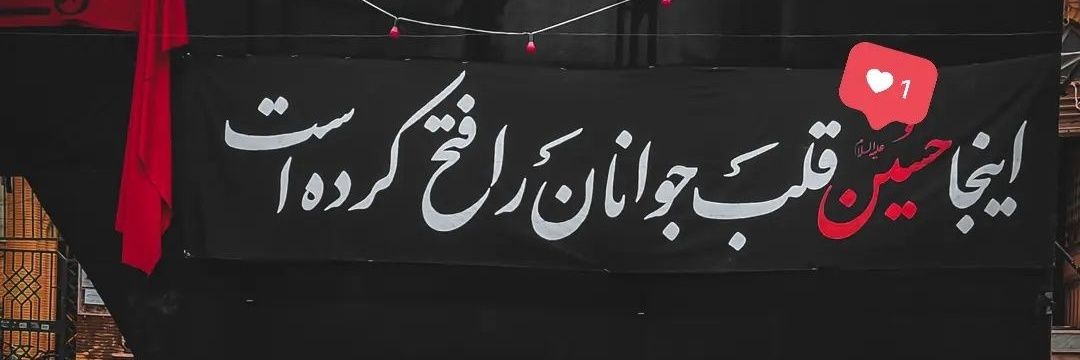 اینجا حسین علیه‌السلام قلبِ جوانان را فتح کرده است
1